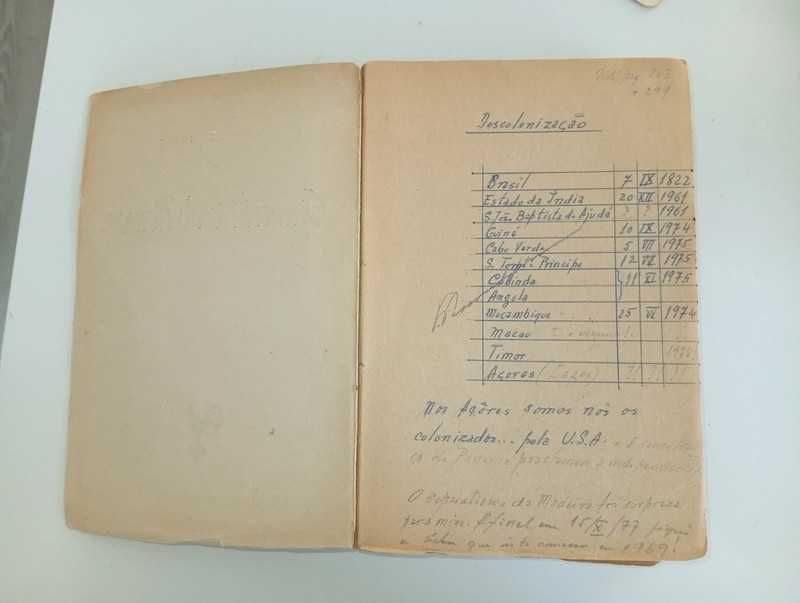 Descolonização
Brasil 7 IX 1822
Estado da Índia 20 XII 1961
S. João Baptista de Ajudá ? ? 1961
Guiné 10 IX 1974
Cabo Verde 5 VII 1975
S. Tomé e Principe 12 VII 1975
Cabinda } 11 XI 1975
Angola
Moçambique 25 VI 1974
Macau
Timor
Açores (Lages) ?! ?! ?!
Nos Açôres somos nós os
colonizados... pela U.S.A.
O separatismo da Madeira foi surpresa
para mim. Afinal em 15/X/77 fiquei
a saber que isto começou em 1969!